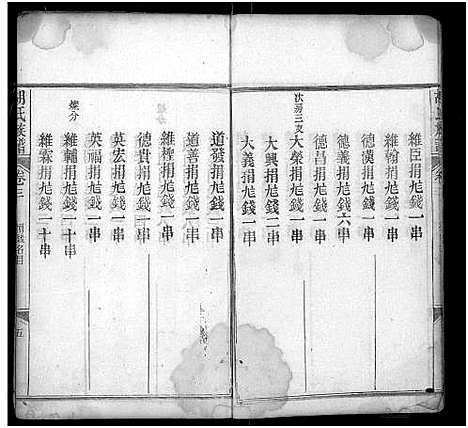 維臣捐尨錢一串
維翰捐尨錢一串
德漢捐尨錢一串
德義捐尨錢六串
德昌捐尨錢一串
次房三支
大榮捐尨錢一串
大興捐尨錢二串
大義捐尨錢一串
道發捐尨錢一串
道善捐尨錢一串
維檉捐尨錢一串
德貴捐尨錢二串
英宏捐尨錢一串
英福捐尨錢二串
燦分
維輔捐尨錢一十串
維霖捐尨錢二十串
胡氏族譜
卷三
五